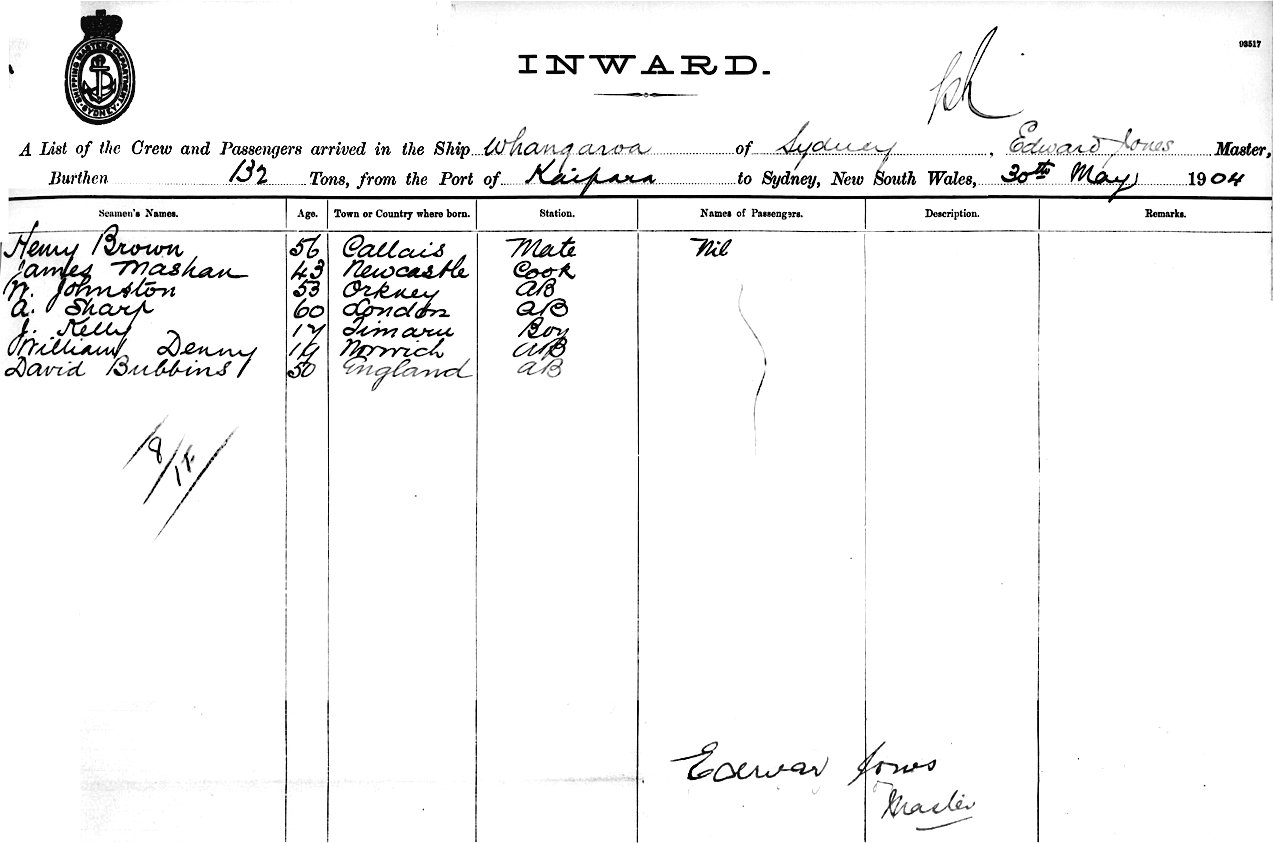 SHIPPING MASTERS DEPARTMENT SYDNEY
93517
INWARD.
A List of the Crew and Passengers arrived in the Ship Whangaroa of Sydney, Edward Jones Master,
Burthen 132 Tons, from the Port of Kaipara to Sydney, New South Wales, 30th May 1904
Seamen's Names. Age. Town or Country where born. Station. Names of Passengers. Description. Remarks.
Henry Brown 56 Callais Mate Nil
James Mashan 43 Newcastle Cook
W. Johnston 53 Orkney AB
A. Sharp 60 London AB
J. Kelly 17 Timaru Boy
William Denny 19 Norwich AB
David Bubbins 50 England AB
Edwar Jones
Master